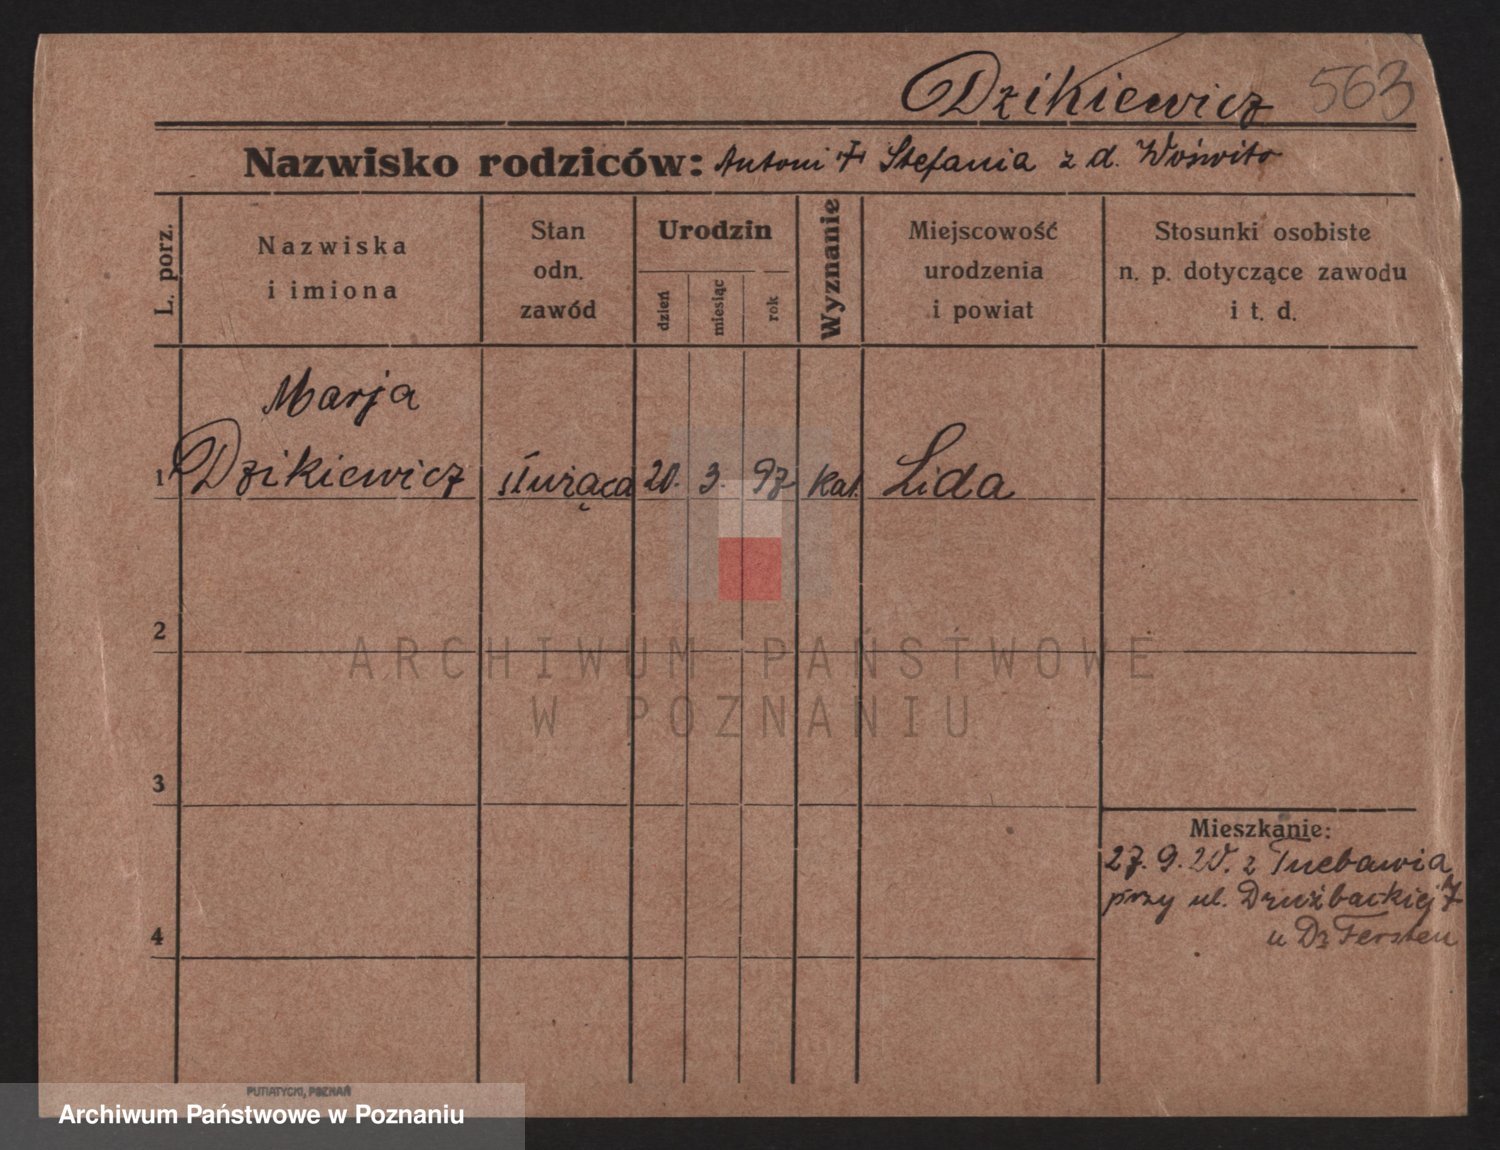 Dzikiewicz 563
Nazwisko rodziców: Antoni Stefania z d.
L. porz.
Nazwiska
i imiona
Stan
odn.
zawód
Urodzin
dzień
miesiąc
rok
Wyznanie
Miejscowość
urodzenia
i powiat
Stosunki osobiste
n. p. dotyczące zawodu
i t. d.
Marja
1 Dzikiewicz służąca 20. 3. 97 kat. Lida
2
ARCHIWUM PAŃSTWOWE
W POZNANIU
3
Mieszkanie:
27. 9. 20. z
przy ul. Drużbackiej 7
u Dr Fersten
4
PUTIATYCKI, POZNAŃ
Archiwum Państwowe w Poznaniu